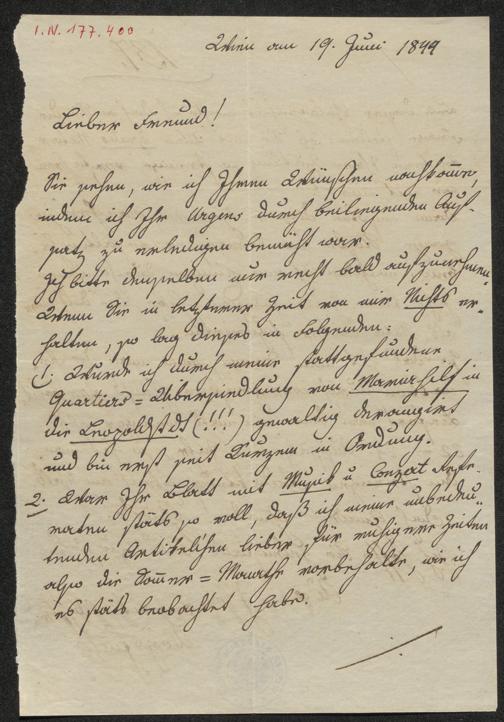 I.N. 177.400
Wien am 19. Juni 1844
Lieber Freund!
Sie sehen, wie ich Ihren Wünschen nachkom̄e,
indem ich Ihr Urgens durch beiliegenden Auf-
satz zu erledigen bemüht war.
Ich bitte denselben nur recht bald aufzunehmen.
Wenn Sie in letzterer Zeit von mir Nichts er-
halten, so lag dieses in Folgenden:
1. Wurde ich durch meine stattgefundene
Quartiers=Übersiedlung von Mariahilf in
die Leopoldstdt (!!!) gewaltig derangirt
und bin erst seit Kurzem in Ordnung.
2. War Ihr Blatt mit Musik u Conzert Refe-
raten stäts so voll, daß ich meine unbedeu-
tenden Artikelchen lieber für ruhigere Zeiten
also die Som̄er=Monathe vorbehalte, wie ich
es stäts beobachtet habe.